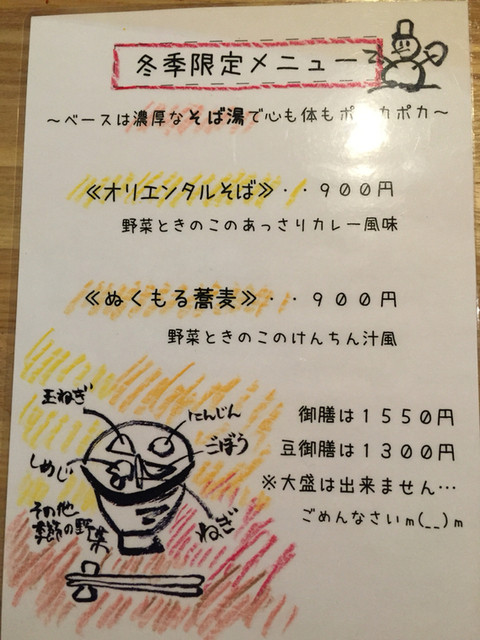 冬季限定メニュー
～ベースは濃厚なそば湯で心も体もポカポカ～
≪オリエンタルそば≫・・９００円
野菜ときのこのあっさりカレー風味
≪ぬくもる蕎麦≫・・９００円
野菜ときのこのけんちん汁風
御膳は１５５０円
豆御膳は１３００円
※大盛は出来ません…
ごめんなさいm(__)m
玉ねぎ
にんじん
ごぼう
しめじ
ねぎ
その他
季節の野菜